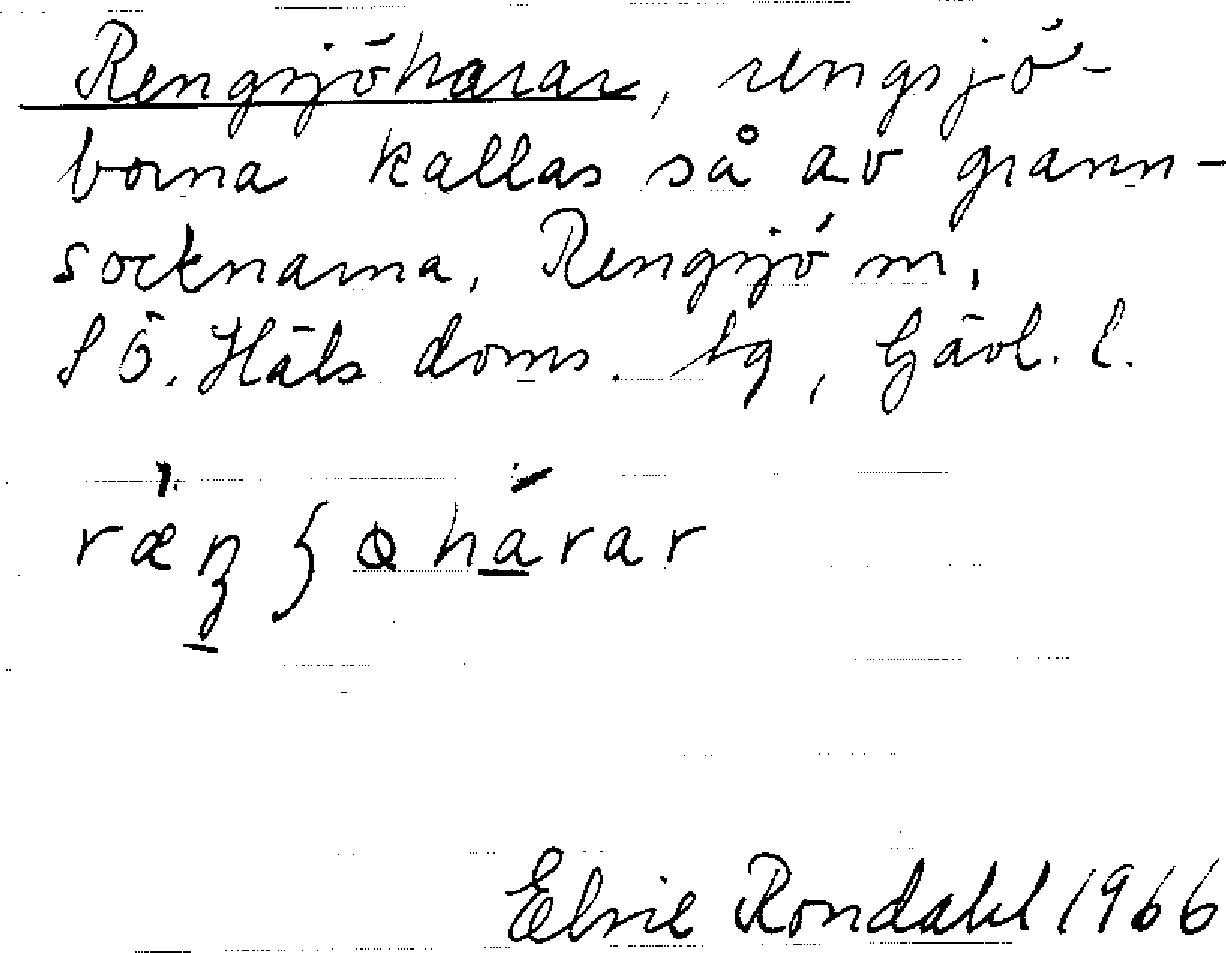 Rengsjöharar, rengsjö-
borna kallas så av grann-
socknarna, Rengsjö sn,
SÖ. Häls doms. tg, Gävl. l.
Elvie Rondahl 1966